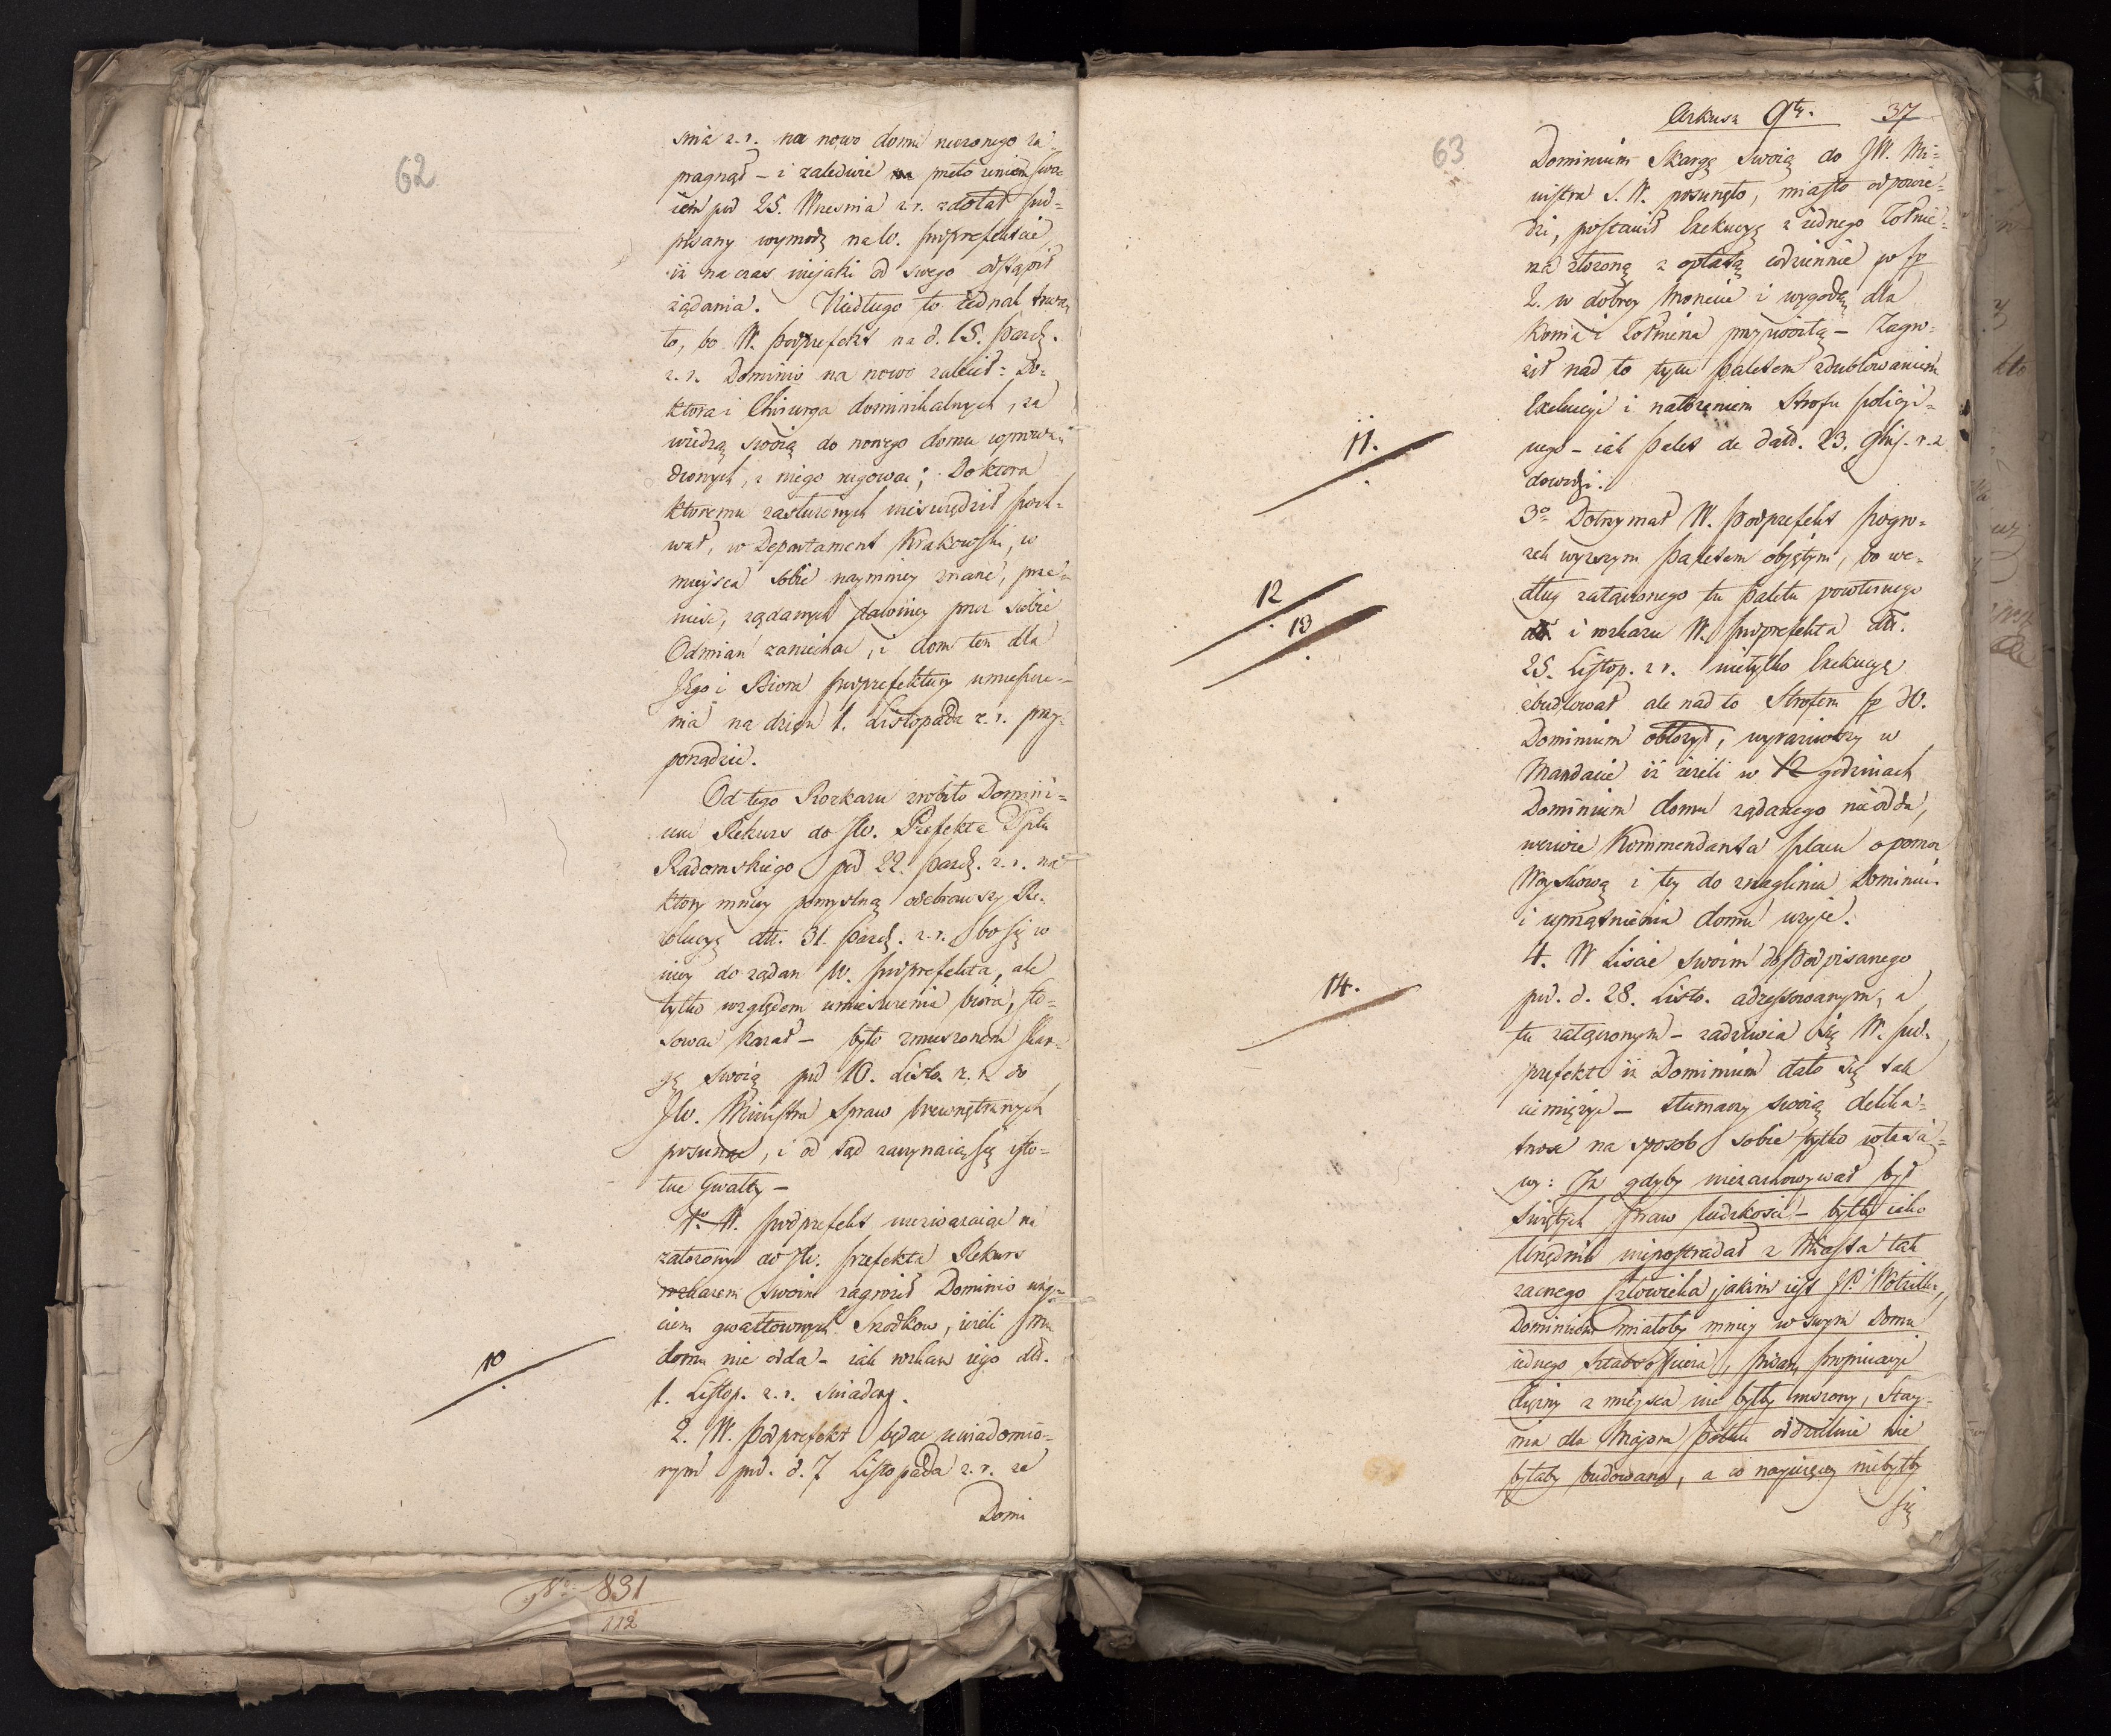 62
snia z. r. na nowo domu rzeczonego za-
pragnął – i zaledwie przeło swo-
iem pod 25. Wrzesnia r. r. zdołał pod-
pisany wymodz na W. podprefekcie
iż na czas niejaki od swego odstąpił
żądania. Niedługo to iednak trwa-
ło, bo W. Podprefekt na d. 15. Paźdz.
z. r. Dominio na nowo zalecił: Do-
ktora i Chirurga dominikalnych, za
wiedzą swoią do nowego domu wprowa-
dzonych, z niego rugować; Doktora
ktoremu zasłużonych
w Departament Krakowski, w
mieysca sobie naymniey znane, prze-
niesc, żądanych dawniey przez siebie
Odmian zaniechać, i dom ten dla
Jego i Biora podprefektury umieszcze-
nia na dzien 1. Listopada z. r. przy-
porządzic.
Od tego Rozkazu zrobiło Domini-
um Rekurs do JW. Prefekta Dptu
Radomskiego pod 22. Paźdz. z. r. na
ktory mniey pomyslną odebrawszy Re-
zolucyą dtt. 31. Paźdz. z. r. bo się w
niey do żądan W. podprefekta, ale
tylko względem umieszczenia biora, sto-
sować kazał – było zmuszonem skar-
gę swoią pod 10. Listo. z. r. do
JW. Ministra Spraw Wewnętrznych
posunąć, i od tąd zaczynaią się isto-
tne Gwałty –
1o. W. podprefekt niezważaiąc na
założony do JW. Prefekta Rekurs
rozkazem swoim zagroził Dominio uży-
ciem gwałtownych Srodkow, ieżeli mu
domu nie odda – iak rozkaz iego dtt.
1. Listop. z. r. swiadczy.
10
2. W. Podprefekt będąc uwiadomio-
nym pod. d. 7 Listopada z. r. że
Domi
No. 831
112
Arkusz 9ty. 37
63
Dominium Skargę swoią do JW. Mi-
nistra S. W. posunęło, miasto odpowie-
dzi, postawił Exekucyą z iednego Żołnie-
rza złożoną z opłatą codziennie po fp
2. w dobrey Monecie i wygodą dla
Konia i Żołnierza przyzwoitą – Zagro-
ził nad to tym Paletem zdublowaniem
Exekucyi i nałożeniem Strofu policyi-
nego – iak Palet de dato. 23. 9bris. r. z
dowodzi.
11.
3o Dotrzymał W. Podprefekt pogro-
zek wyższym Paletem obiętym, bo we-
dług załączonego tu Paletu powtornego
12
i rozkazu W. podprefekta dtt.
13
25. Listop. z r. nietylko Exekucyą
zdublował ale nad to Strofem fp 30.
Dominium obłożył, wyraziwszy w
Mandacie iż ieżeli w 12 godzinach
Dominium domu żądanego nieodda,
wezwie Kommendanta placu o pomoc
Woyskową i tey do znaglenia Dominii
i uprzątnienia domu użyie.
4. W Liscie swoim do Podpisanego
pod. d. 28. Listo. adressowanym, a
14.
tu załączonym – zadziwia się W. Pod-
prefekt iż Dominium dało się tak
ciemiężyc – tłumaczy swoią delika-
tnosc na sposob sobie tylko
wy: Iż gdyby niezachowywał był
Swiętych Praw ludzkości – byłby iako
Urzędnik niepostradał z Miasta tak
zacnego Człowieka, jakim iest JP.
Dominium miałoby mniey w swym domu
iednego Sztabsofficera,
z mieysca nie byłby ruszony, Stay-
nia dla Majora Półku oddzielnie nie
byłaby budowana, a co naywięcey niebyłby
się